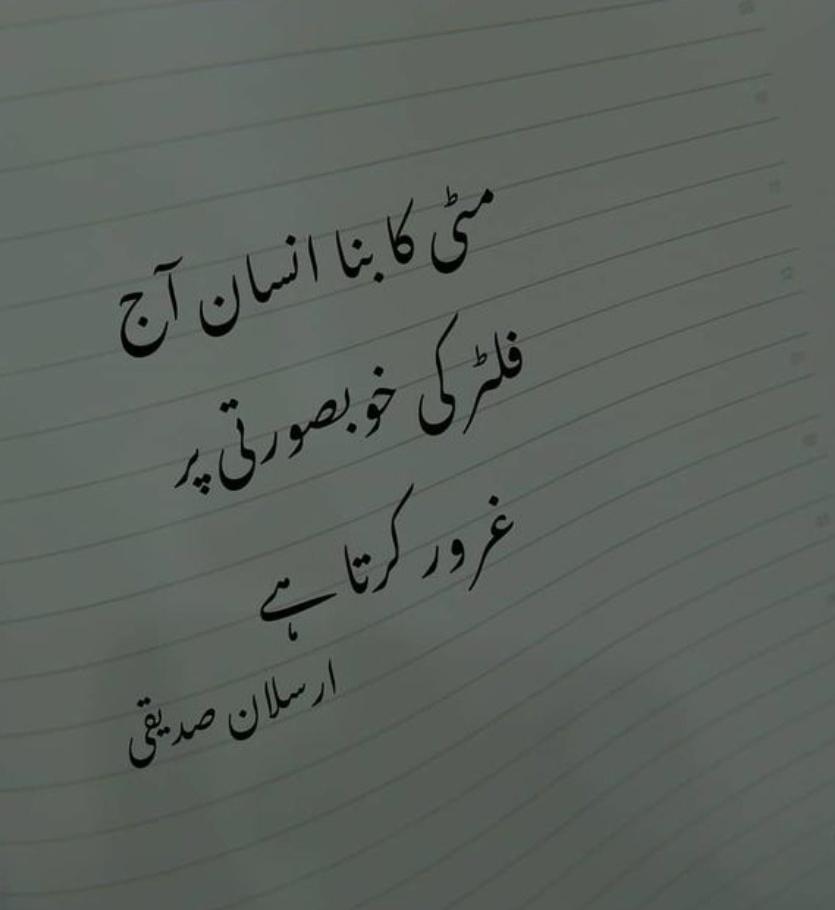 مٹی کا بنا انسان آج
فلٹر کی خوبصورتی پر
غرور کرتا ہے
ارسلان صدیقی